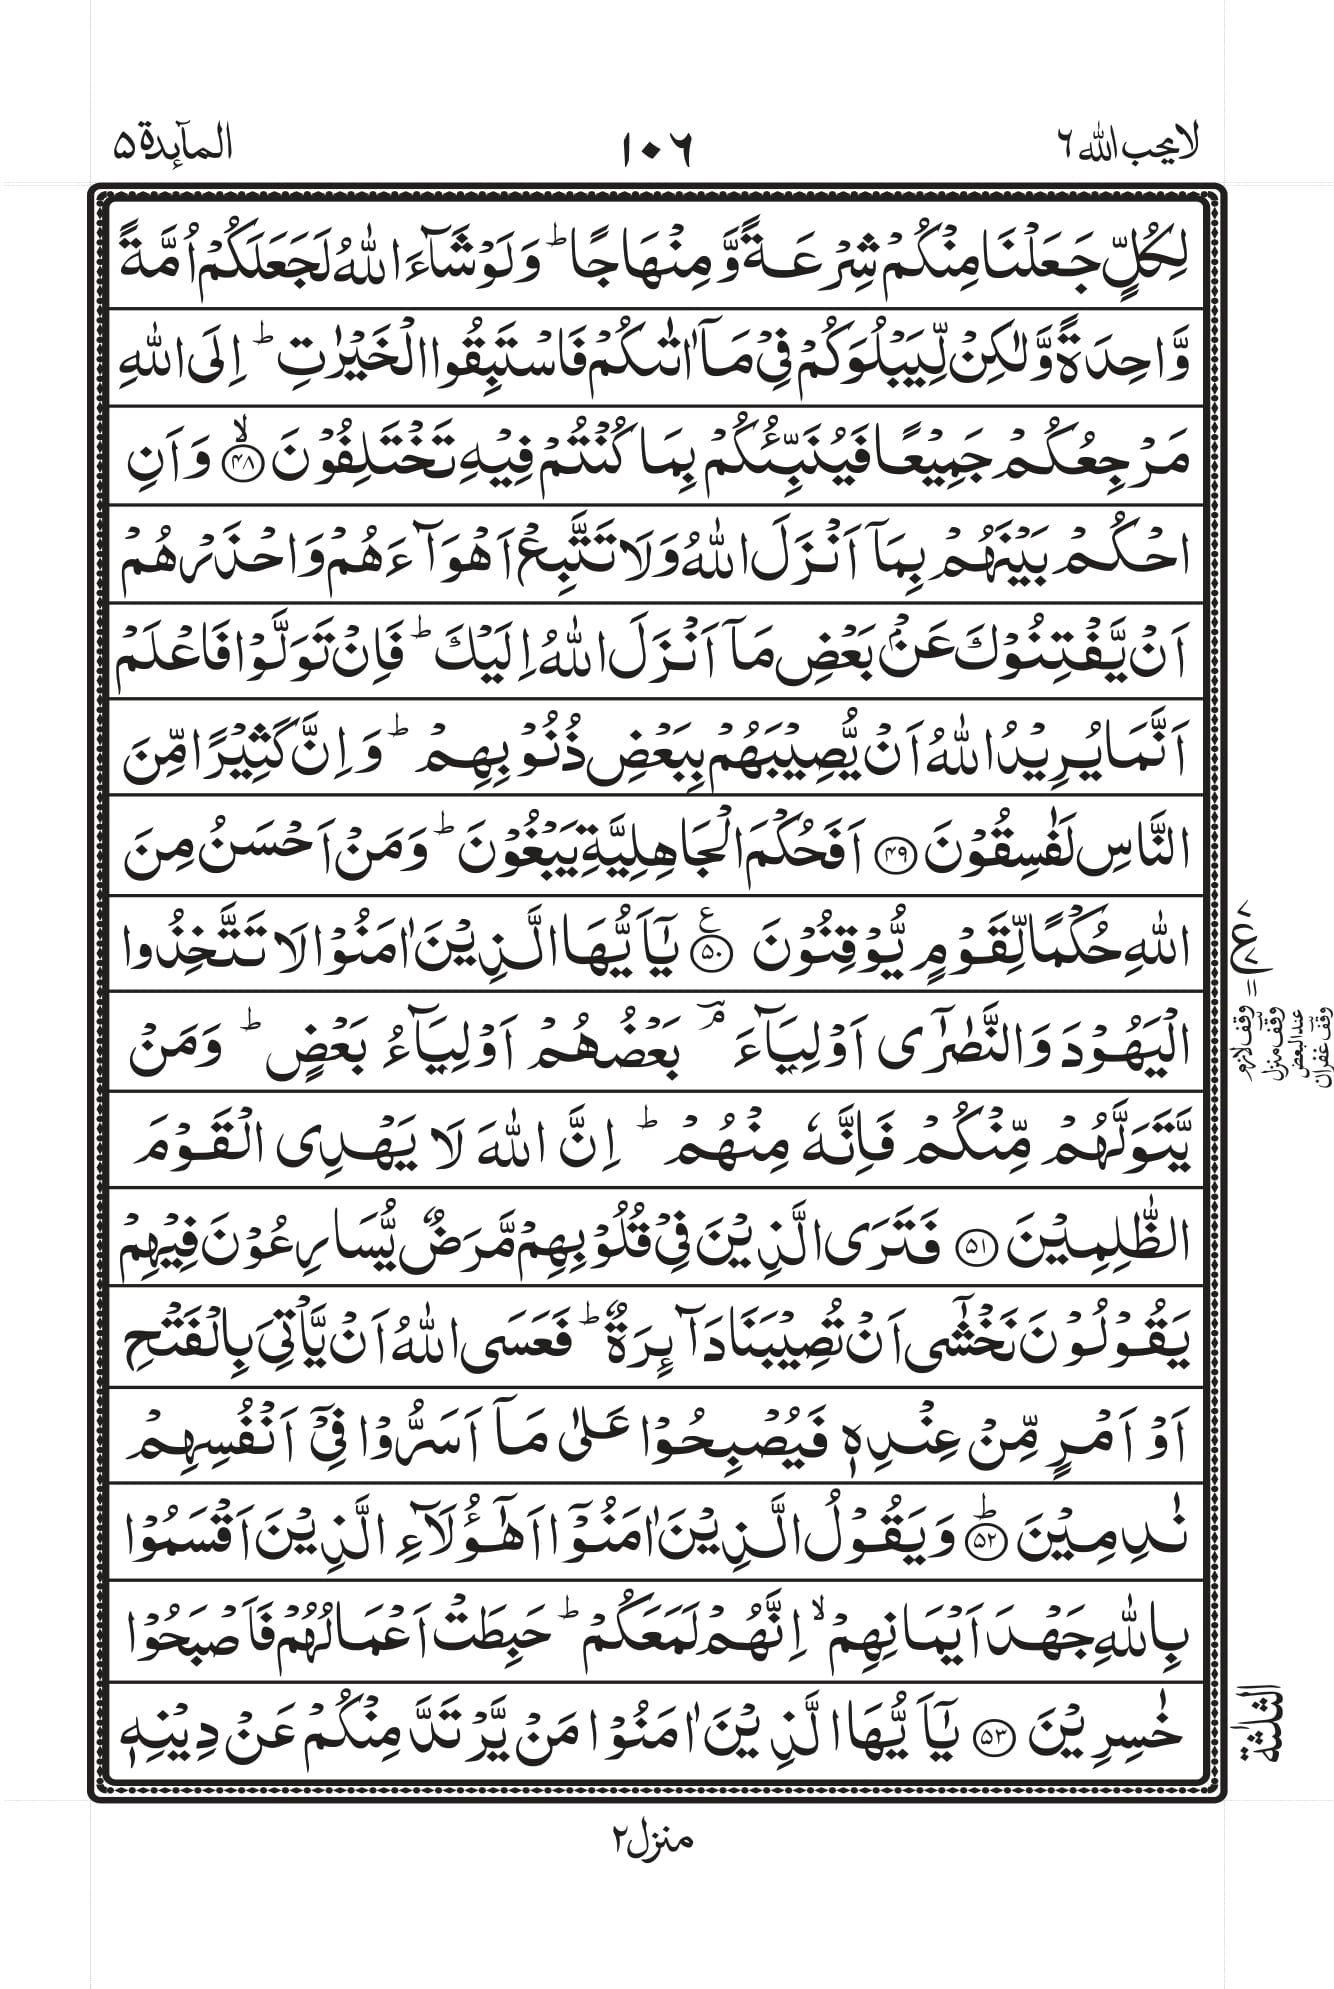 لا يحب الله ٦
١٠٦
المآىِٕدة ٥
لِكُلٍّ جَعَلْنَا مِنْكُمْ شِرْعَةً وَّ مِنْهَاجًا ؕ وَ لَوْ شَآءَ اللّٰهُ لَجَعَلَكُمْ اُمَّةً
وَّاحِدَةً وَّ لٰكِنْ لِّيَبْلُوَكُمْ فِيْ مَاۤ اٰتٰىكُمْ فَاسْتَبِقُوا الْخَيْرٰتِ ؕ اِلَى اللّٰهِ
مَرْجِعُكُمْ جَمِيْعًا فَيُنَبِّئُكُمْ بِمَا كُنْتُمْ فِيْهِ تَخْتَلِفُوْنَ ۙ﴿۴۸﴾ وَ اَنِ
احْكُمْ بَيْنَهُمْ بِمَاۤ اَنْزَلَ اللّٰهُ وَ لَا تَتَّبِعْ اَهْوَآءَهُمْ وَ احْذَرْهُمْ
اَنْ يَّفْتِنُوْكَ عَنْۢ بَعْضِ مَاۤ اَنْزَلَ اللّٰهُ اِلَيْكَ ؕ فَاِنْ تَوَلَّوْا فَاعْلَمْ
اَنَّمَا يُرِيْدُ اللّٰهُ اَنْ يُّصِيْبَهُمْ بِبَعْضِ ذُنُوْبِهِمْ ؕ وَ اِنَّ كَثِيْرًا مِّنَ
النَّاسِ لَفٰسِقُوْنَ ﴿۴۹﴾ اَفَحُكْمَ الْجَاهِلِيَّةِ يَبْغُوْنَ ؕ وَ مَنْ اَحْسَنُ مِنَ
اللّٰهِ حُكْمًا لِّقَوْمٍ يُّوْقِنُوْنَ ﴿۵۰﴾ع يٰۤاَيُّهَا الَّذِيْنَ اٰمَنُوْا لَا تَتَّخِذُوا
الْيَهُوْدَ وَ النَّصٰرٰۤى اَوْلِيَآءَ ۘؔ بَعْضُهُمْ اَوْلِيَآءُ بَعْضٍ ؕ وَ مَنْ
يَّتَوَلَّهُمْ مِّنْكُمْ فَاِنَّهٗ مِنْهُمْ ؕ اِنَّ اللّٰهَ لَا يَهْدِى الْقَوْمَ
الظّٰلِمِيْنَ ﴿۵۱﴾ فَتَرَى الَّذِيْنَ فِيْ قُلُوْبِهِمْ مَّرَضٌ يُّسَارِعُوْنَ فِيْهِمْ
يَقُوْلُوْنَ نَخْشٰۤى اَنْ تُصِيْبَنَا دَآىِٕرَةٌ ؕ فَعَسَى اللّٰهُ اَنْ يَّاْتِيَ بِالْفَتْحِ
اَوْ اَمْرٍ مِّنْ عِنْدِهٖ فَيُصْبِحُوْا عَلٰى مَاۤ اَسَرُّوْا فِيْۤ اَنْفُسِهِمْ
نٰدِمِيْنَ ؕ﴿۵۲﴾ وَ يَقُوْلُ الَّذِيْنَ اٰمَنُوْۤا اَهٰۤؤُلَآءِ الَّذِيْنَ اَقْسَمُوْا
بِاللّٰهِ جَهْدَ اَيْمَانِهِمْ ۙ اِنَّهُمْ لَمَعَكُمْ ؕ حَبِطَتْ اَعْمَالُهُمْ فَاَصْبَحُوْا
خٰسِرِيْنَ ﴿۵۳﴾ يٰۤاَيُّهَا الَّذِيْنَ اٰمَنُوْا مَنْ يَّرْتَدَّ مِنْكُمْ عَنْ دِيْنِهٖ
ع
وقف لازم
وقف منزل
عند البعض
وقف غفران
الثلٰثة
منزل ٢